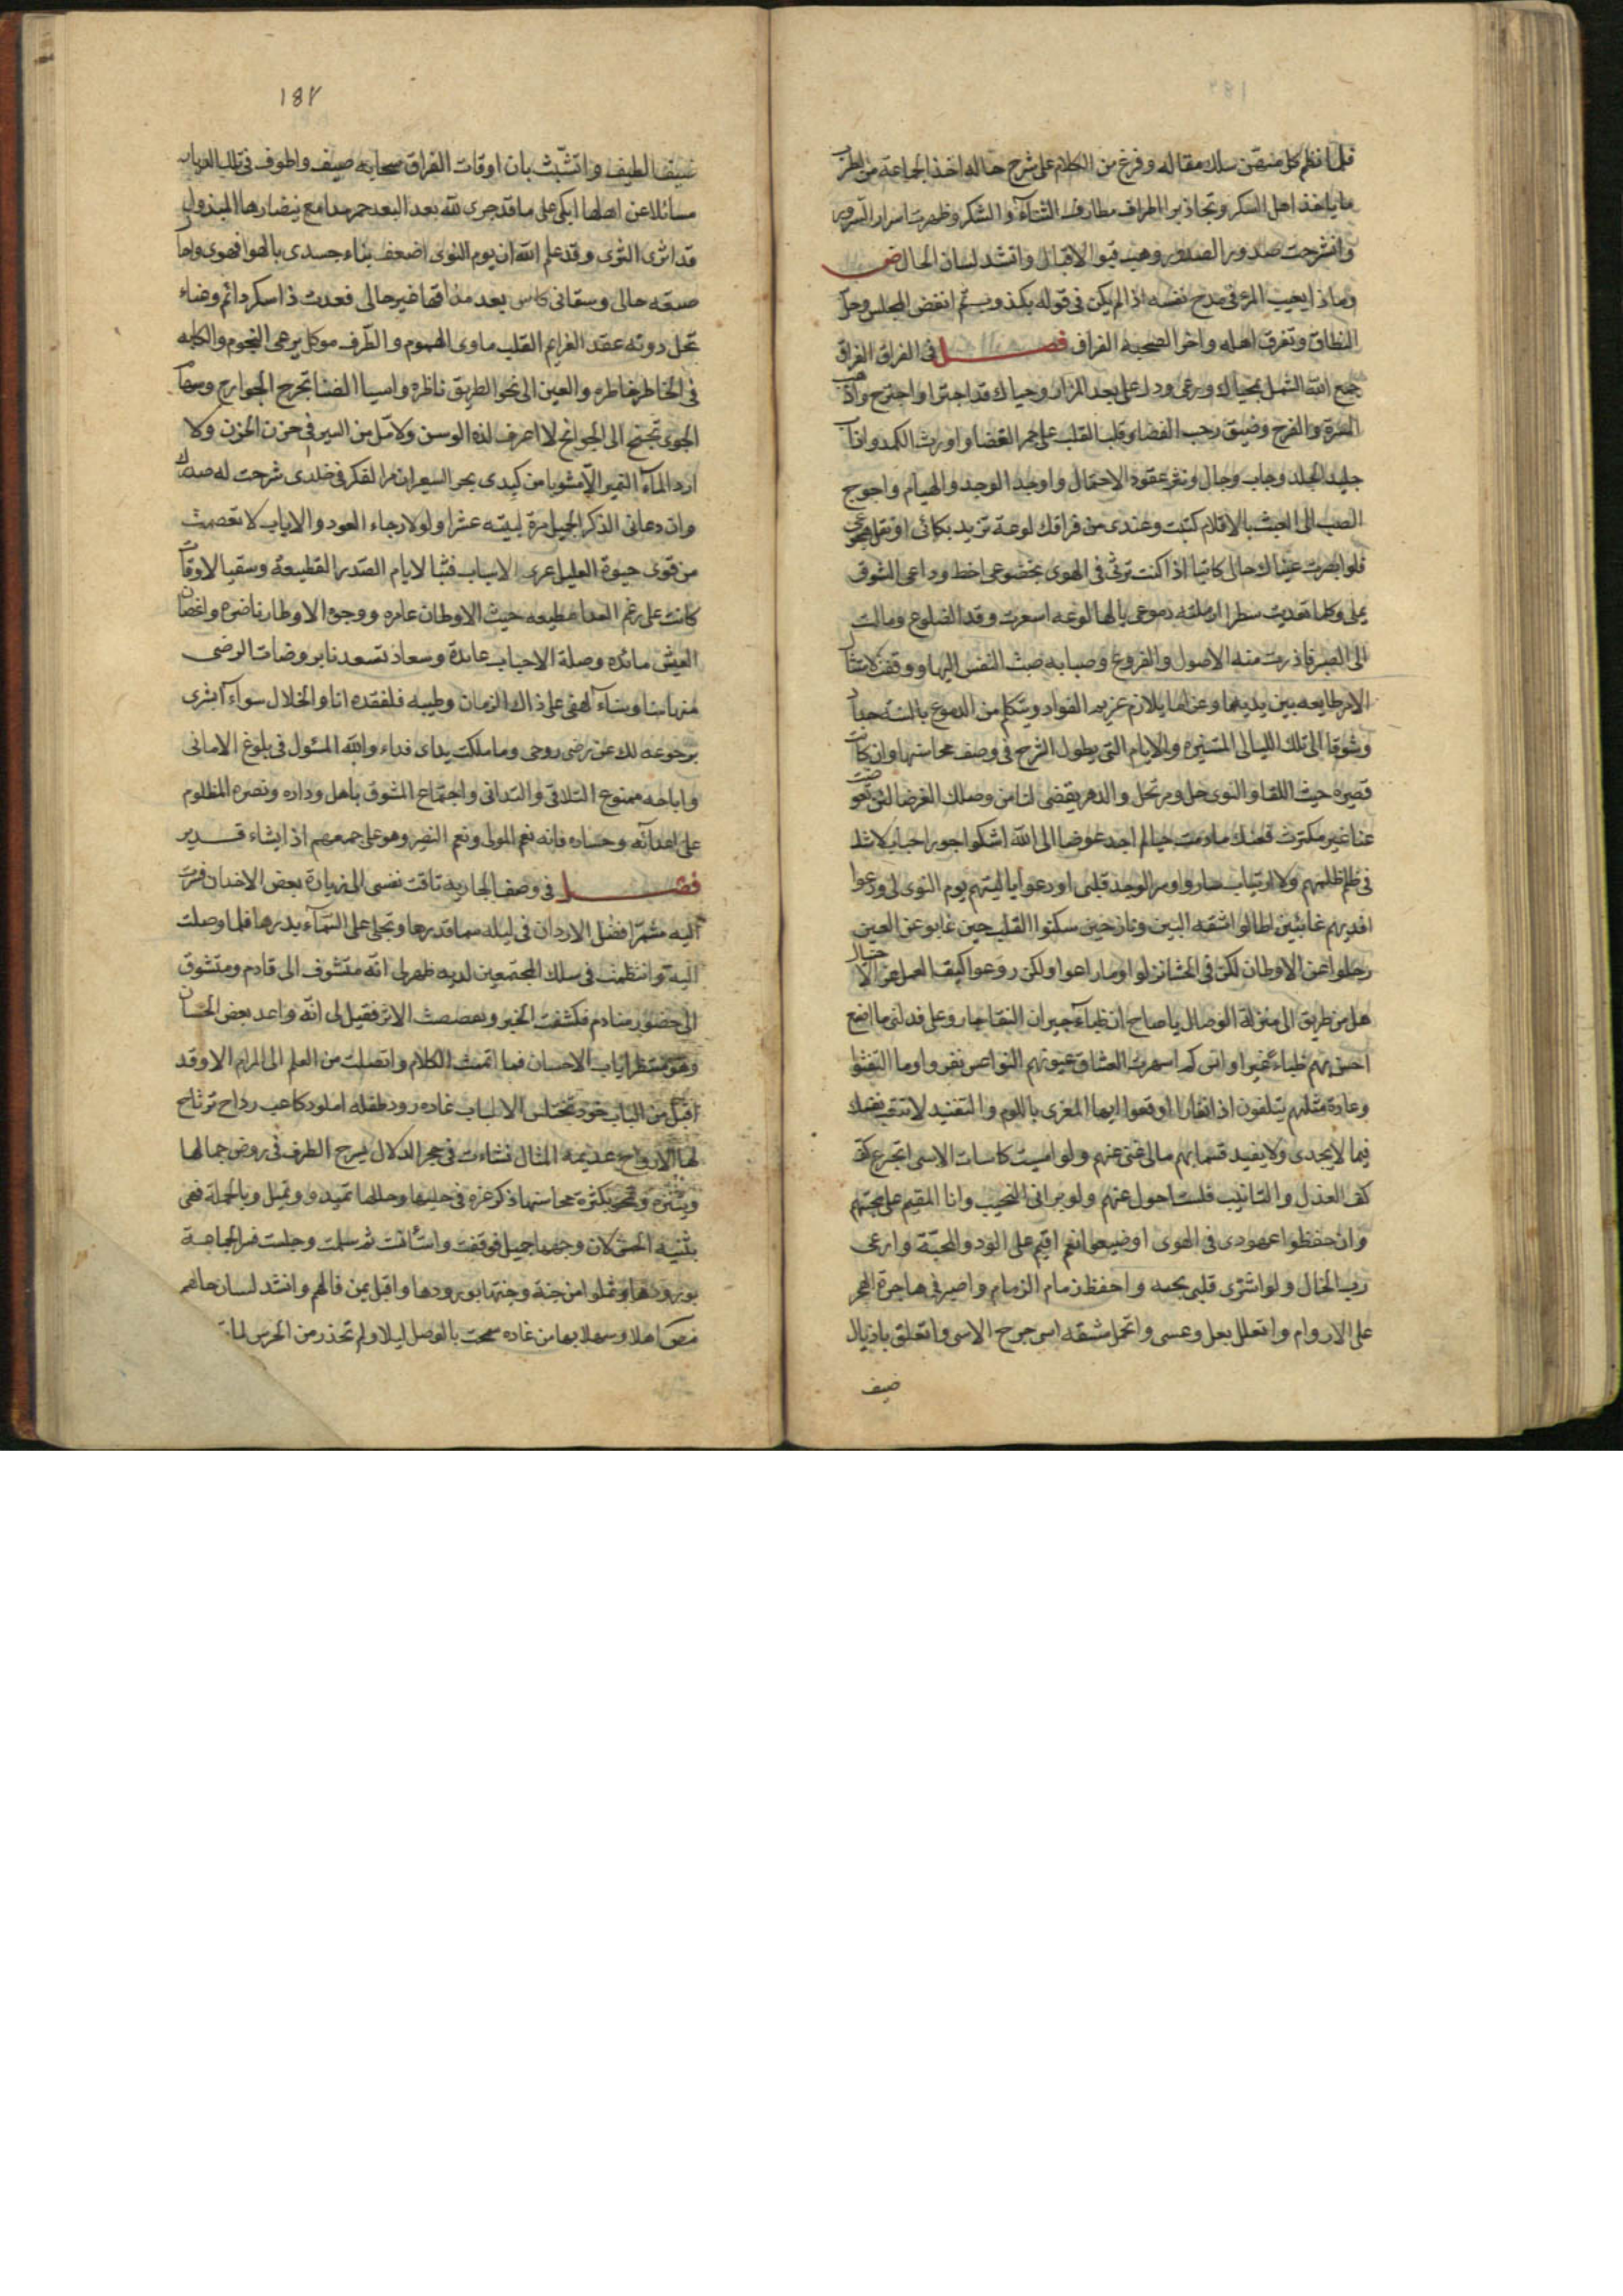 فلما نظم كل منهن سلك مقاله وفرغ من الكلام على شرح حاله اخذ الجماعة من الطرب
ما ياخذ اهل السكر وتجاذبوا اطراف مطارف الثناء والشكر وظهرت اسرار السرور
وانشرحت صدور الصدور وهبت قبول الاقبال وانشد لسان الحال
وماذا يعيب المرء في مدح نفسه اذا لم يكن في قوله بكذوب ثم انفض المجلس وحل
النطاق وتفرق اهله واخر الصحبة الفراق فصل في الفراق الفراق
جمع الله الشمل بمحياك ورعى ودك على بعد المزار وحياك قد اجترا واجترح واذهب
المسرة والفرح وضيق رحب الفضا وقلب القلب على جمر الغضا واورث الكمد واذاب
جليد الجلد وجاب وجال ونثر عقود الاحتمال واوجد الوجد والهيام واحوج
الصب الى البث بالاقلام كتبت وعندي من فراقك لوعة تزيد بكائي او تقل هجوعي
فلو ابصرت عيناك حالي كاتبا اذا كنت ترثي في الهوى بخضوعي اخط وداعي الشوق
يملي وكلما تعديت سطرا رملته دموعي يا لها لوعه اسعرت وقد الضلوع ومالت
الى الصبر فاذرت منه الاصول والفروع وصبابه صبت النفس اليها ووقفت لامتثال
الامر طايعه بين يديها وعن لها يلازم غريم الفواد ويتكلم من الدموع بالسنه حداد
وشوقا الى تلك الليالي المستنيره والايام التي يطول الشرح في وصف محاسنها وان كانت
قصيره حيث اللقا والنوى حل ومرتحل والدهر يقضي لنا من وصلك الغرضا
عنا غير مكترث فعنك مادمت حيا لم اجد عوضا الى الله اشكو جور احباب لاشك
في ظلم ظلمهم ولا ارتياب ساروا ومر الوجد قلبي اودعوا يا ليتهم يوم النوى لي ودعوا
افديهم غائبين اطالوا شقه البين ونازحين سكنوا القلب حين غابوا عن العين
رحلوا عن الاوطان لكن في الحشا نزلوا وما راعوا ولكن روعوا كيف العمل عن الاحتيال
هل من طريق الى منزلة الوصال يا صاح ان ظباء جيران النقا جاروا على فدلني ما اصنع
احسن بهم ظباء غيوا وانس كم اسهرت العشاق عيونهم النواعس نفروا وما التفتوا
وعادة مثلهم يتلفون اذا نفارا اوقعوا ايها المغرى باللوم والتفنيد لا تتعب نفسك
فيما لا يجدي ولا يفيد قسما بهم مالي غنى عنهم ولو امسيت كاسات الاسى اتجرع كف
كف العذل والتانيب فلست احول عنهم ولو براني النحيب وانا المقيم على محبتهم
وان حفظوا عهودي في الهوى او ضيعوا نعم اقيم على الود والمحبة وارعى
رب الخال ولو اشترى قلبي بحبه واحفظ زمام الزمام واصبر في هاجرة الهجر
على الاروام واتعلل بعل وعسى واتحمل مشقه اس جرح الاسى واتعلق باذيال
ضيف
١٨٧
ضيف الطيف واتشبث بان اوقات الفراق سحابه صيف واطوف في تلك الديار
مسائلا عن اهلها ابكي على ما قد جرى لله بعد البعد حمر مدامع نيضارها المبذول
قد اثرى الثرى وقد علم الله ان يوم النوى اضعف بناء جسدي بالهوا فهوى واحال
صبغه حالي وسقاني كاس بعد مذاقها غير حالي فعدت ذا سكر دائم وعناء
تحل دونه عقد الغرايم القلب ماوى الهموم والطرف موكل برعى النجوم والكابه
في الخاطر خاطره والعين الى نحو الطريق ناظره واسياف الضنا تجرح الجوارح وسهام
الجوى تجنح الى الجوانح لا اعرف لذه الوسن ولا امل من السير في حزن الحزن ولا
ارد الماء النمير الا مشوبا من كبدي بحر السعير ان مر الفكر في خلدي شرحت له صدرك
وان دعاني الذكر الجميل مرة لبيته عشرا ولولا رجاء العود والاياب لانفصمت
من قوى حيوة العليل عرى الاسباب فتبا لايام الصد والقطيعة وسقيا لاوقات
كانت على رغم العدا مطيعه حيث الاوطان عامره ووجوه الاوطار ناضره واغصان
العيش مائده وصلة الاحباب عائدة وسعاد تسعدنا بروضات الرضى
منها سنا وسناء لهفي على ذاك الزمان وطيبه فلفقده انا والخلال سواء ابشرى
برجوعه لك عن رضى روحي وما ملكت يداى فداء والله المسئول في بلوغ الاماني
واباحه ممنوع التلاقي والتداني واجتماع المشوق باهل وداده ونصره المظلوم
على اعدائه وحساده فانه نعم المولى ونعم النصير وهو على جمعهم اذا يشاء قدير
فصل في وصف الجاريه تاقت نفسي الى زيارة بعض الاخدان فسرت
اليه مشمرا فضل الاردان في ليله سما قدرها وتجلى على السماء بدرها فلما وصلت
اليه وانتظمت في سلك المجتمعين لديه ظهر لي انه متشوف الى قادم ومتشوق
الى حضور منادم فكشفت الخبر وبحثت الاثر فقيل لي انه واعد بعض الحسان
وهو منتظر اياب الاحسان فما اتممت الكلام واتصلت من العلم الى المرام الا وقد
اقبل من الباب خود تختلس الالباب غاده رود طفله املود كاعب رداح ترتاح
لها الارواح عديمه المثال نشاءت في حجر الدلال يسرح الطرف في روض جمالها
ويتنزه ويخبر بكثرة محاسنها ذكر عزه في حليها وحللها تميد وتميل وبالجملة فهي
بثينه الحسن لان وجهها جميل فوقفت واستأنست ثم سلمت وجلست فسر الجماعة
بورودها وتملوا من جنة وجنتها بورودها واقبل يمن فالهم وانشد لسان حالهم
اهلا وسهلا بها من غاده سمحت بالوصل ليلا ولم تحذر من الحرس لما